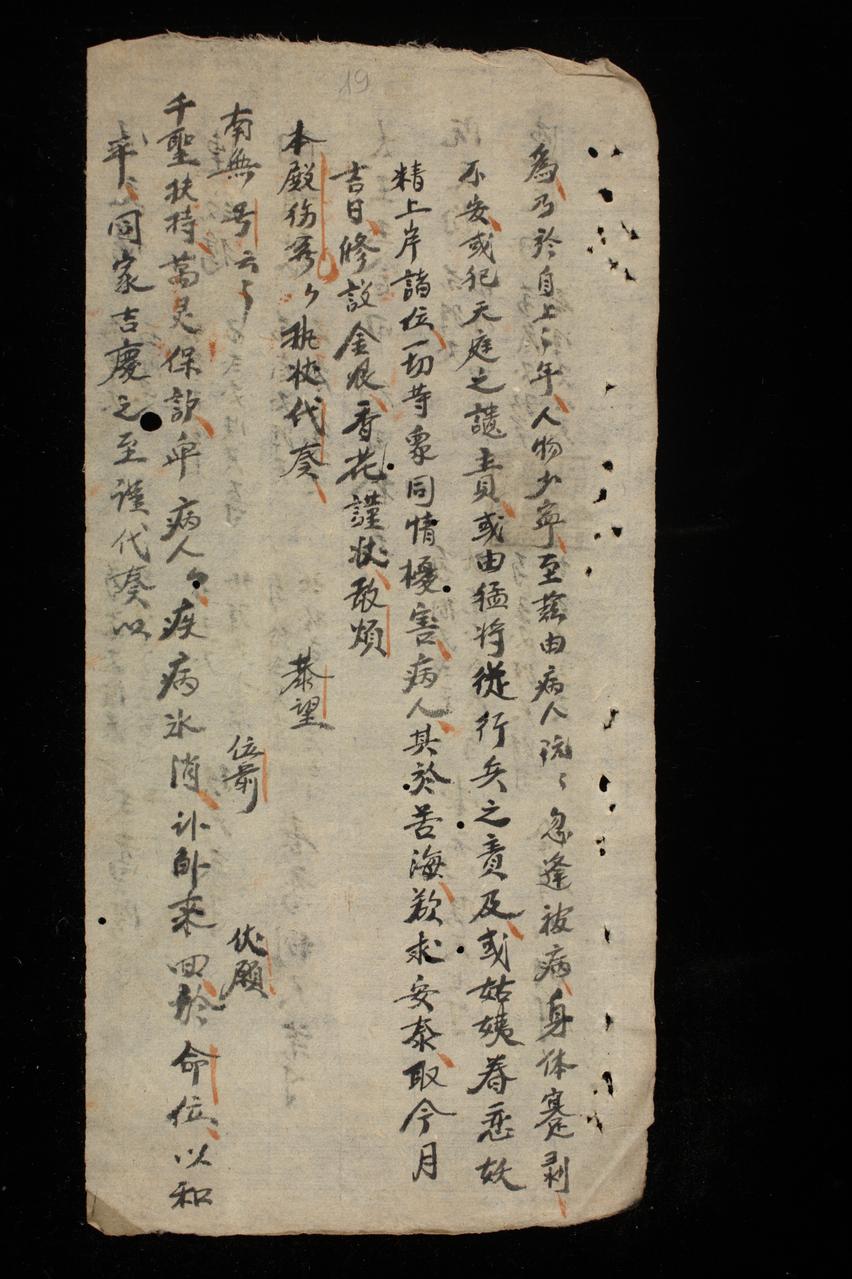 19
為乃於自上〻年人物少寧至茲由病人院〻忽逢被病身体蹇剥
不安或犯天庭之譴責或由猛将從行兵之責及或姑姨眷恋妖
精上岸諸位一切等衆同情擾害病人其於苦海欲求安泰取今月
吉日修設金銀香花謹状敢煩
本殿 执状代奏 恭望
南無号云〻 位前 伏願
千聖扶持萬灵保护 病人〻疾病氷消 來回於命位以和
平同家吉慶之至謹代奏以